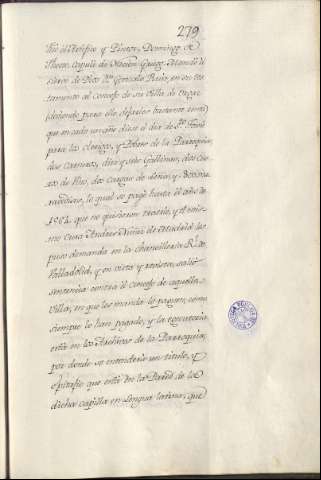 279
fue el Artifice y Pintor, Domingo de
Theoto Copuli de Nacion Griego. Mandó el
siervo de Dios Dn. Gonzalo Ruiz, en su tes-
tamento al Concejo de su Villa de Orgaz
(dejando para ello desados bastante renta)
que en cada un año diese el dia de Sto. Thomé
para los clerigos, y Pobres de la Parroquia,
dos Carneros, diez y seis Gallinas, dos Cue-
ros de Vino, dos cargas de leña, y 800 ma-
ravedises, lo qual se pagó hasta el año de
1564 que no quisieron traerlo, y el mis-
mo Cura Andres Nuñez de Madrid les
puso demanda en la Chancilleria Rl. de
Valladolid, y en vista y revista, salió
sentencia contra el Concejo de aquella
Villa, en que les manda lo paguen, como
siempre lo han pagado, y la executoria
está en los Archivos de la Parroquia,
por donde se entenderá un titulo, y
epitafio que está en la Pared de la
dicha capilla en lengua latina, que